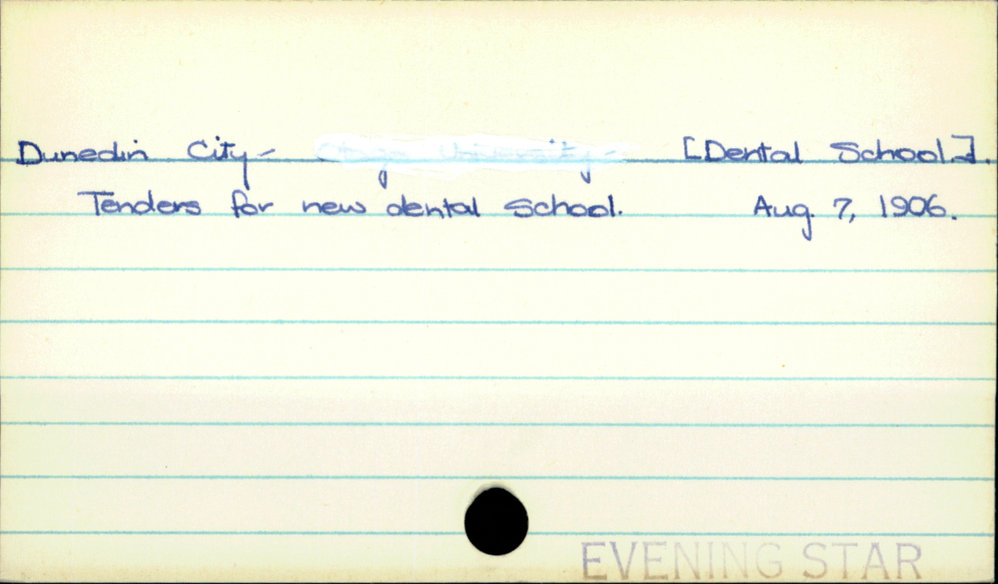 Dunedin City - Otago University - [Dental School.].
Tenders for new dental school. Aug. 7, 1906.
EVENING STAR